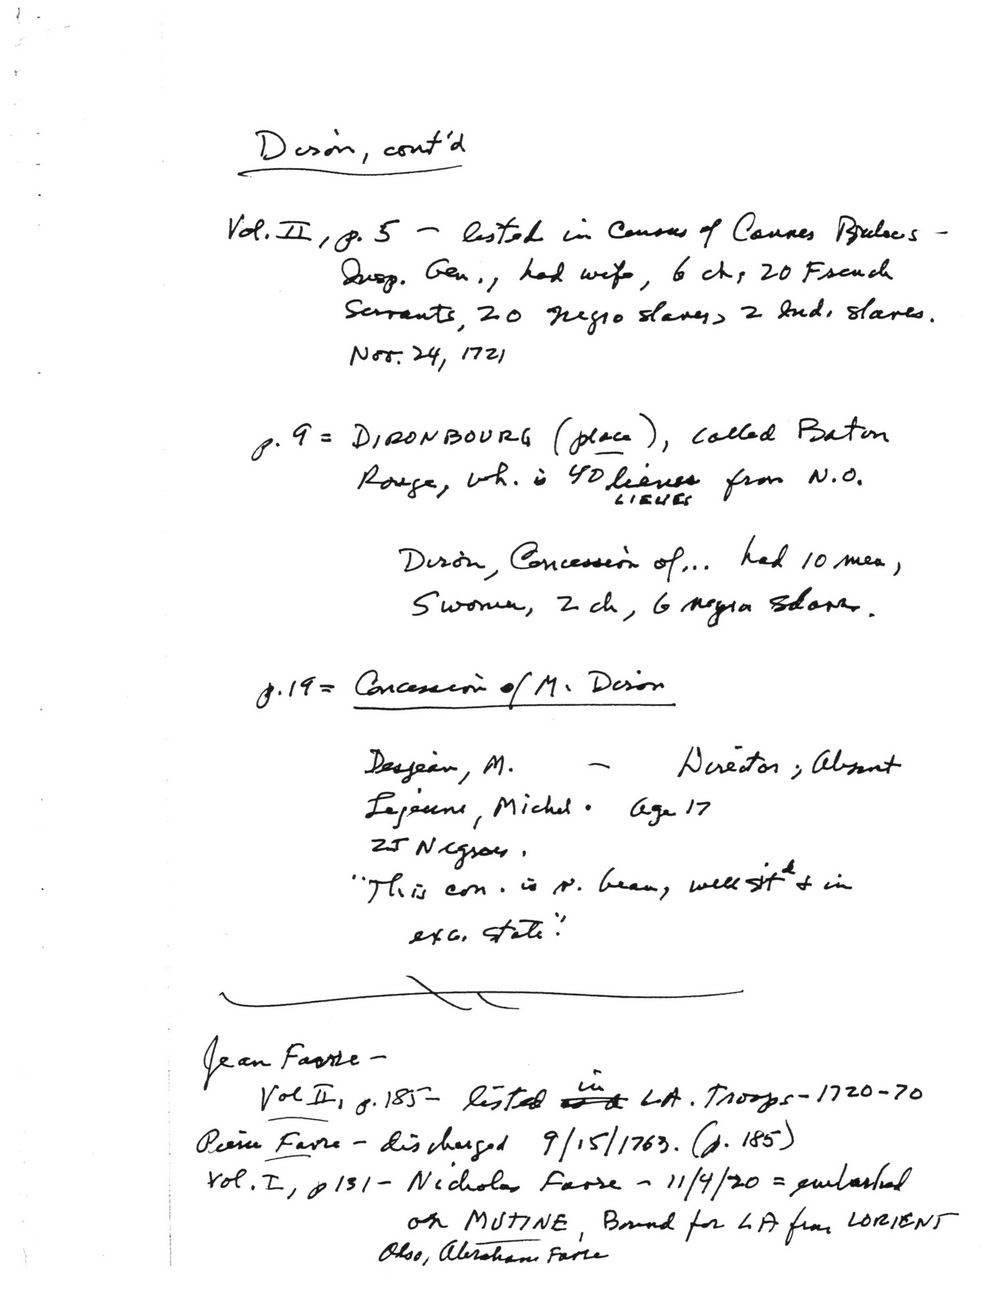 Diron, cont'd
Vol. II, p. 5 – listed in Census of Cannes Brulees –
Insp. Gen., had wife, 6 ch, 20 French
Servants, 20 negro slaves, 2 Ind. slaves.
Nov. 24, 1721
p. 9 = DIRONBOURG (place), called Baton
Rouge, wh. is 40 lieues from N.O.
LIEUES
Diron, Concession of... had 10 men,
5 women, 2 ch, 6 negro slaves.
p. 19 = Concession of M. Diron
Desjean, M. – Director; Absent
Lejeune, Michel. age 17
25 Negroes.
"This con. is v. beau, well sit'd & in
exc. state".
Jean Favre –
Vol II, p. 185 – listed in LA. Troops – 1720-70
Pierre Favre – discharged 9/15/1763. (p. 185)
Vol. I, p 131 – Nicholas Favre – 11/4/20 = embarked
on MUTINE, Bound for LA from LORIENT
Also, Abraham Favre